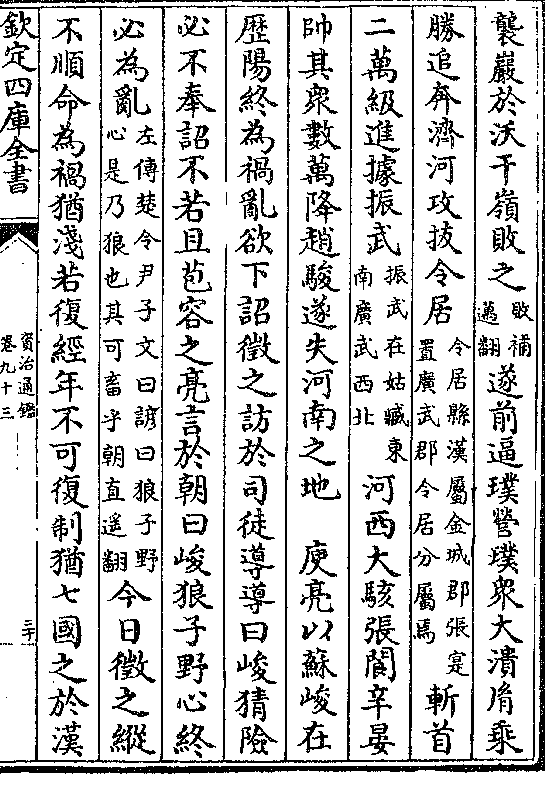 襲巖於沃干嶺敗之敗補邁翻遂前逼璞營璞衆大潰胤乘
勝追奔濟河攻拔令居令居縣漢屬金城郡張寔置廣武郡令居分屬焉斬首
二萬級進據振武振武在姑臧東南廣武西北河西大駭張閬辛晏
帥其衆數萬降趙駿遂失河南之地　庾亮以蘇峻在
歷陽終為禍亂欲下詔徵之訪於司徒導導曰峻猜險
必不奉詔不若且苞容之亮言於朝曰峻狼子野心終
必為亂左傳楚令尹子文曰諺曰狼子野心是乃狼也其可畜乎朝直遥翻今日徵之縱
不順命為禍猶淺若復經年不可復制猶七國之於漢
欽定四庫全書
資治通鑑
卷九十三
三十